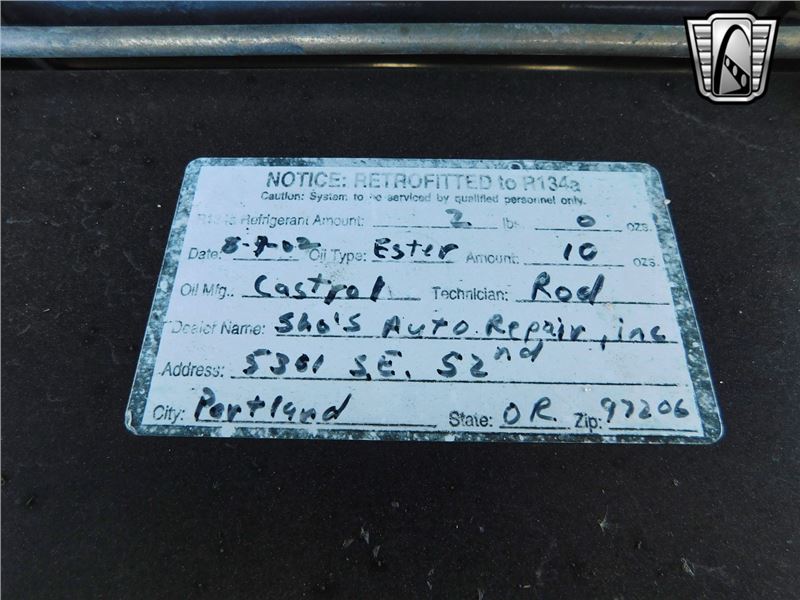 NOTICE: RETROFITTED to R134a
Caution: System to be serviced by qualified personnel only.
R134a Refrigerant Amount: 2 lbs. 0 ozs.
Date: 8-7-02 Oil Type: Ester Amount: 10 ozs.
Oil Mfg.: Castrol Technician: Rod
Dealer Name: Sho's Auto Repair, inc
Address: 5301 S.E. 52nd
City: Portland State: OR. Zip: 97206